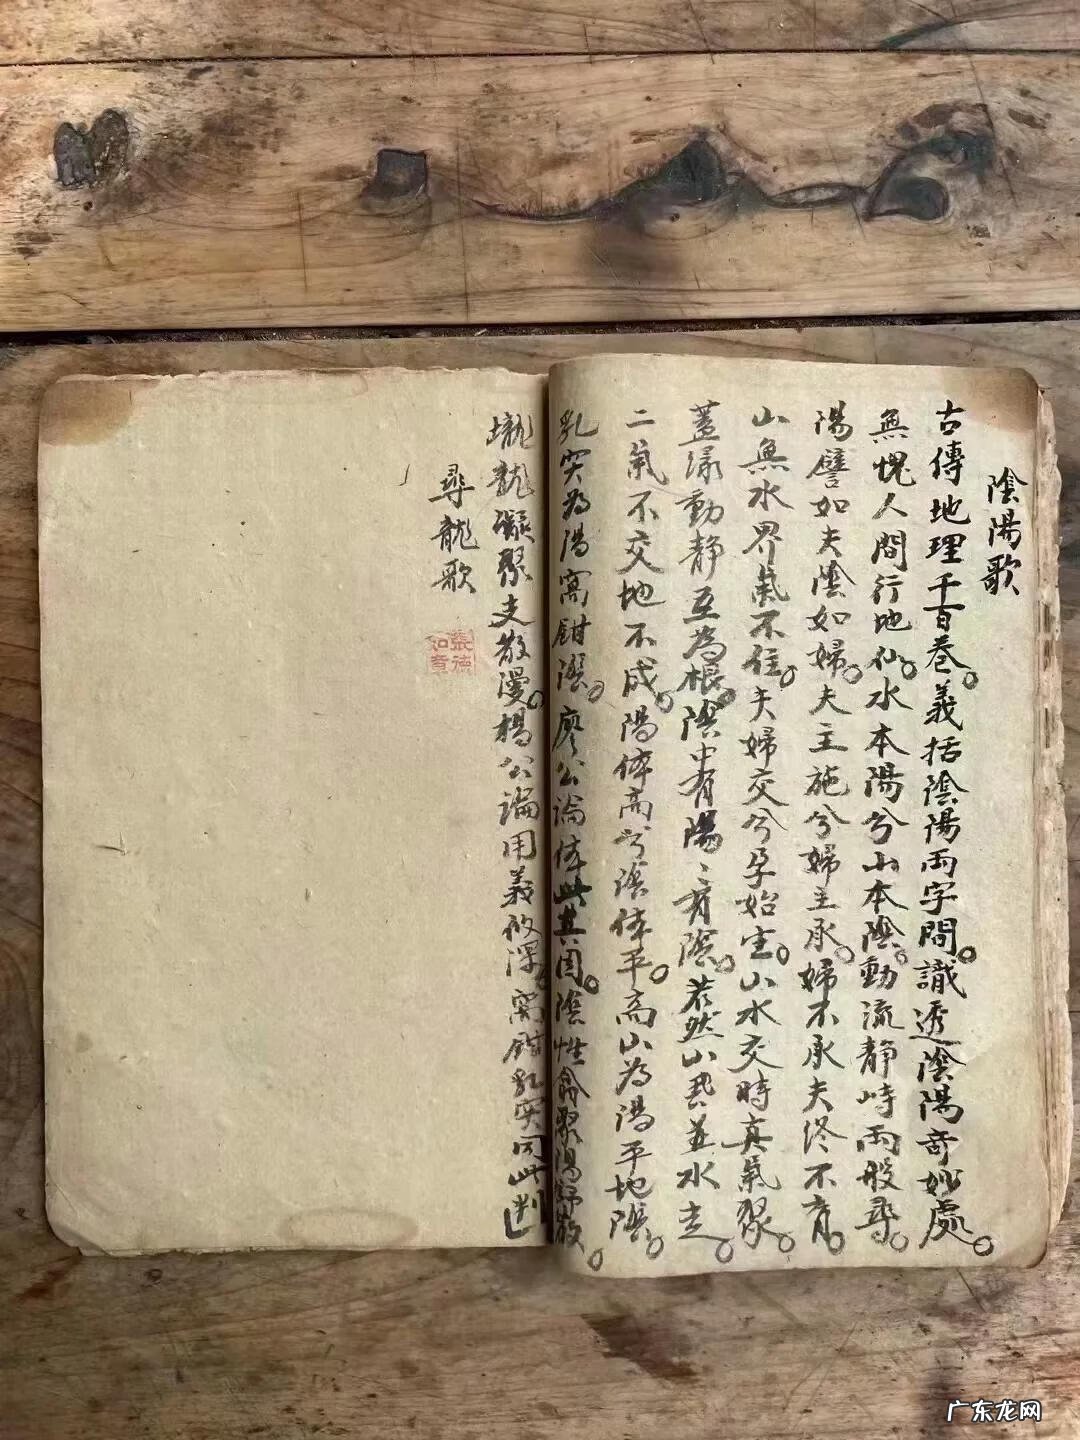 陰陽歌
古傳地理千百卷。義括陰陽兩字間。識透陰陽奇妙處。
無愧人間行地仙。水本陽兮山本陰。動流靜峙兩般尋。
陽譬如夫陰如婦。夫主施兮婦主承。婦不承夫終不育。
山無水界氣不住。夫婦交兮孕始宝。山水交時真氣聚。
蓋緣動靜互為根。陰中有陽、有陰。若然山武並水走。
二氣不交地不成。陽体高兮陰体平。高山為陽平地陰。
乳突為陽窩鉗陰。廖公論体此其因。陰性翕聚陽舒散。
壠龍凝聚支散漫。楊公論用義攸深。窩鉗乳突同此判
尋龍歌
張德
如章
广东龙网